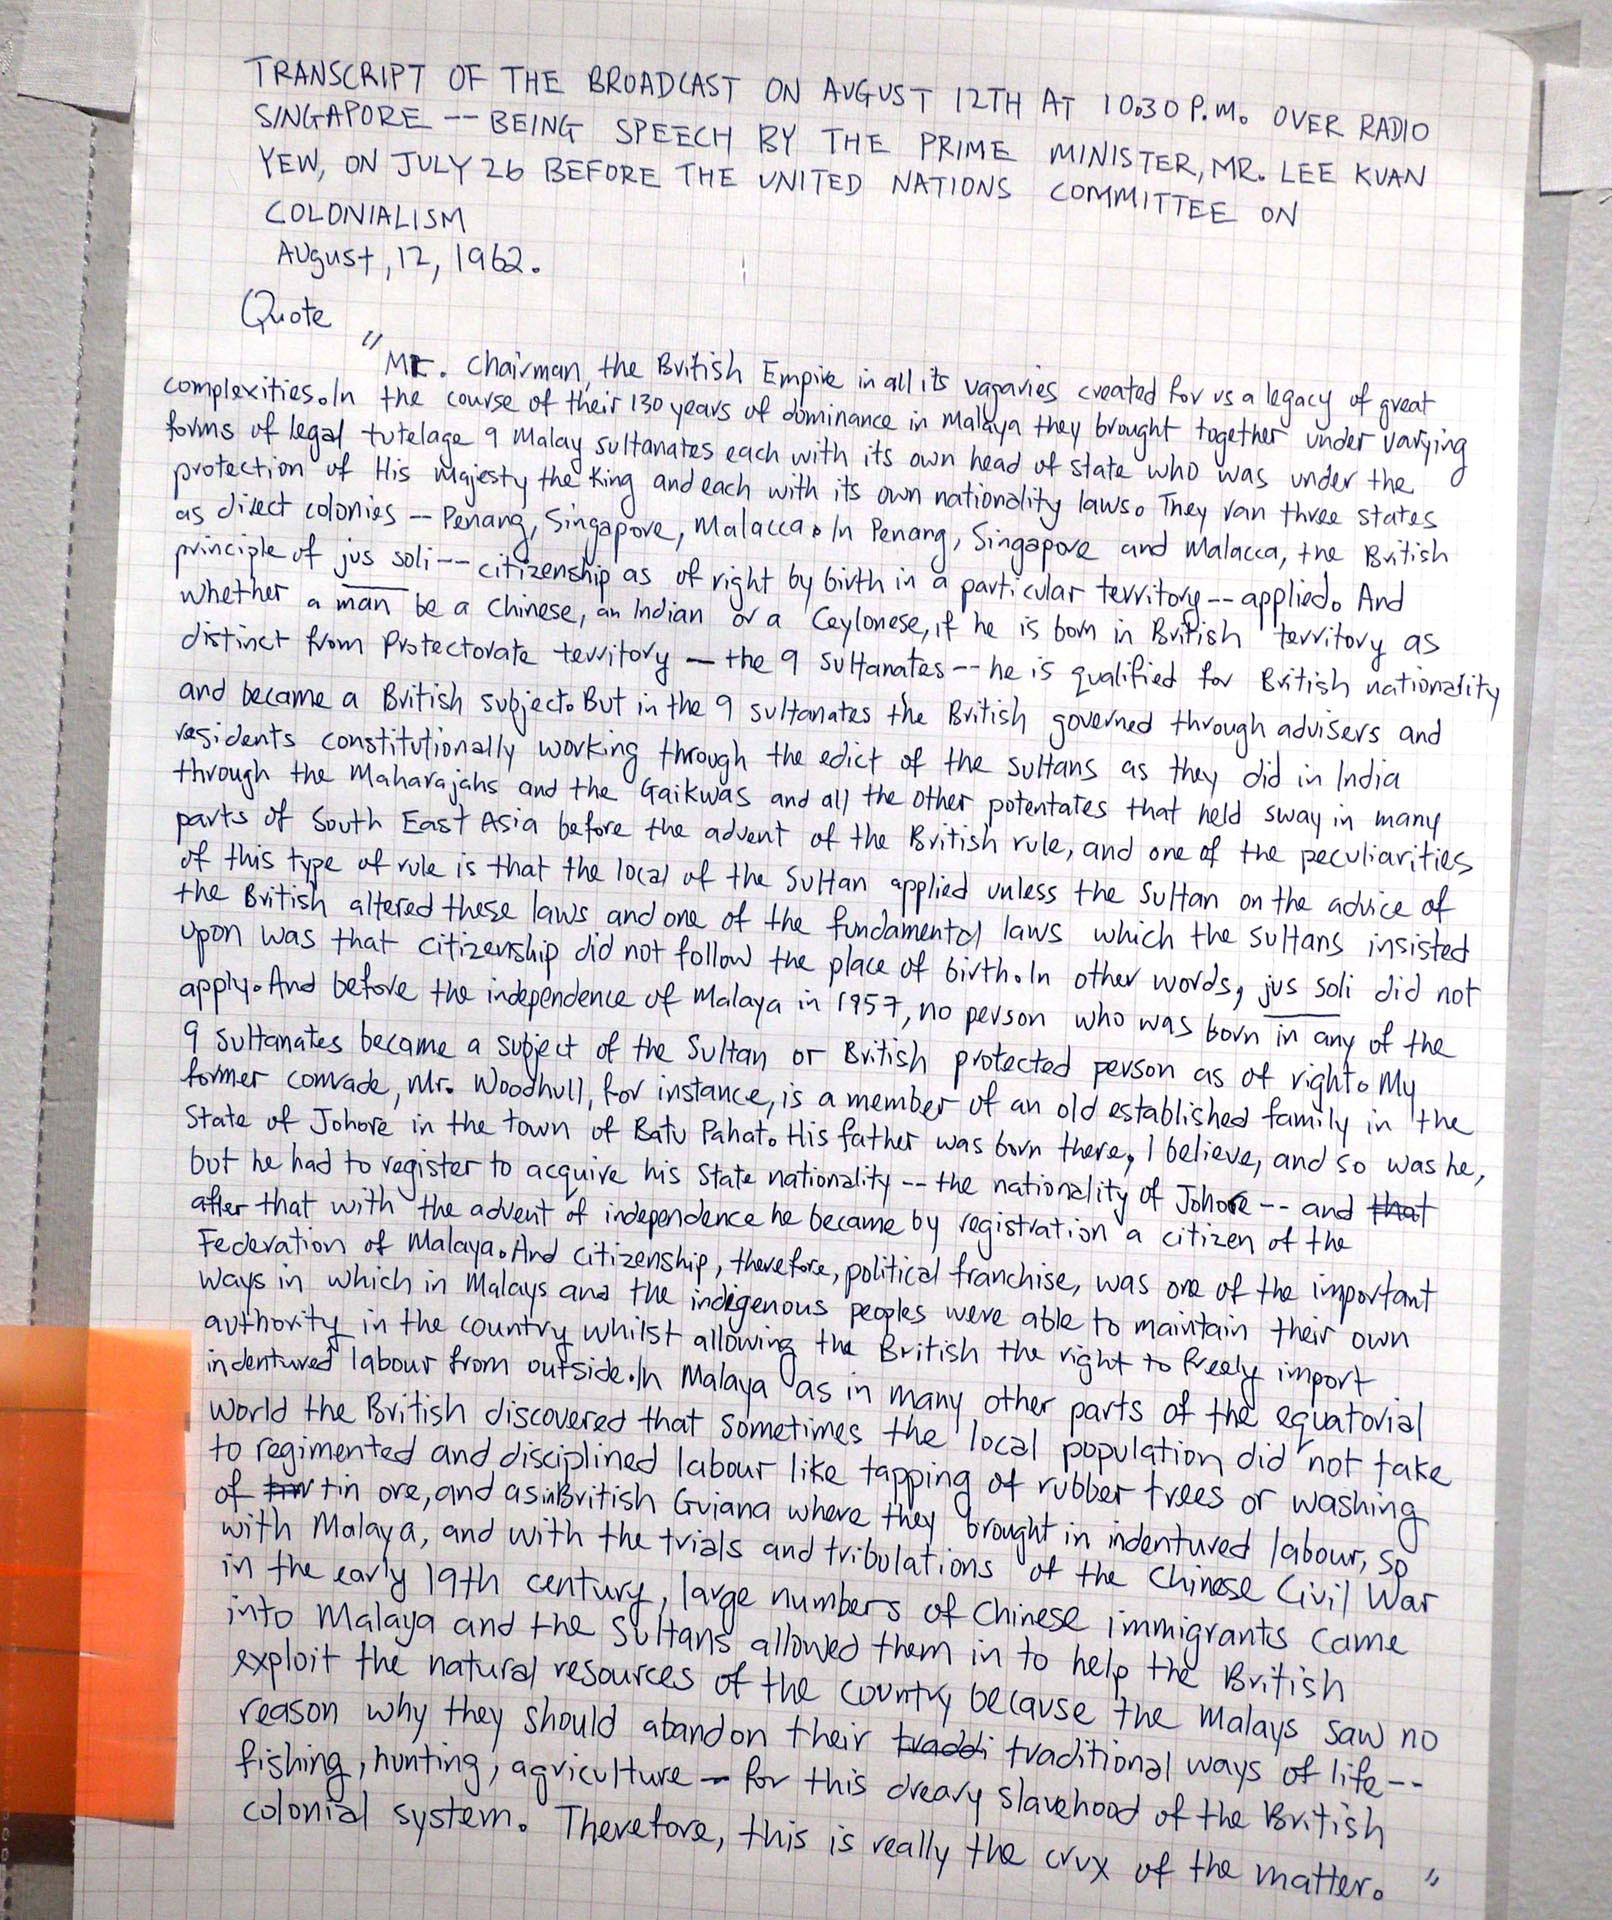 TRANSCRIPT OF THE BROADCAST ON AUGUST 12TH AT 10.30 P.M. OVER RADIO
SINGAPORE -- BEING SPEECH BY THE PRIME MINISTER, MR. LEE KUAN
YEW, ON JULY 26 BEFORE THE UNITED NATIONS COMMITTEE ON
COLONIALISM
August, 12, 1962.
Quote
"Mr. Chairman, the British Empire in all its vagaries created for us a legacy of great
complexities. In the course of their 130 years of dominance in Malaya they brought together under varying
forms of legal tutelage 9 Malay sultanates each with its own head of state who was under the
protection of His Majesty the King and each with its own nationality laws. They ran three states
as direct colonies -- Penang, Singapore, Malacca. In Penang, Singapore and Malacca, the British
principle of jus soli -- citizenship as of right by birth in a particular territory -- applied. And
whether a man be a Chinese, an Indian or a Ceylonese, if he is born in British territory as
distinct from Protectorate territory -- the 9 sultanates -- he is qualified for British nationality
and became a British subject. But in the 9 sultanates the British governed through advisers and
residents constitutionally working through the edict of the sultans as they did in India
through the Maharajahs and the Gaikwas and all the other potentates that held sway in many
parts of South East Asia before the advent of the British rule, and one of the peculiarities
of this type of rule is that the local of the Sultan applied unless the Sultan on the advice of
the British altered these laws and one of the fundamental laws which the Sultans insisted
upon was that citizenship did not follow the place of birth. In other words, jus soli did not
apply. And before the independence of Malaya in 1957, no person who was born in any of the
9 Sultanates became a subject of the Sultan or British protected person as of right. My
former comrade, Mr. Woodhull, for instance, is a member of an old established family in the
State of Johore in the town of Batu Pahat. His father was born there, I believe, and so was he,
but he had to register to acquire his State nationality -- the nationality of Johore -- and that
after that with the advent of independence he became by registration a citizen of the
Federation of Malaya. And citizenship, therefore, political franchise, was one of the important
ways in which in Malays and the indigenous peoples were able to maintain their own
authority in the country whilst allowing the British the right to freely import
indentured labour from outside. In Malaya as in many other parts of the equatorial
world the British discovered that sometimes the local population did not take
to regimented and disciplined labour like tapping of rubber trees or washing
of tin ore, and as in British Guiana where they brought in indentured labour, so
with Malaya, and with the trials and tribulations of the Chinese Civil War
in the early 19th century, large numbers of Chinese immigrants came
into Malaya and the Sultans allowed them in to help the British
exploit the natural resources of the country because the Malays saw no
reason why they should abandon their traddi traditional ways of life --
fishing, hunting, agriculture -- for this dreary slavehood of the British
colonial system. Therefore, this is really the crux of the matter."